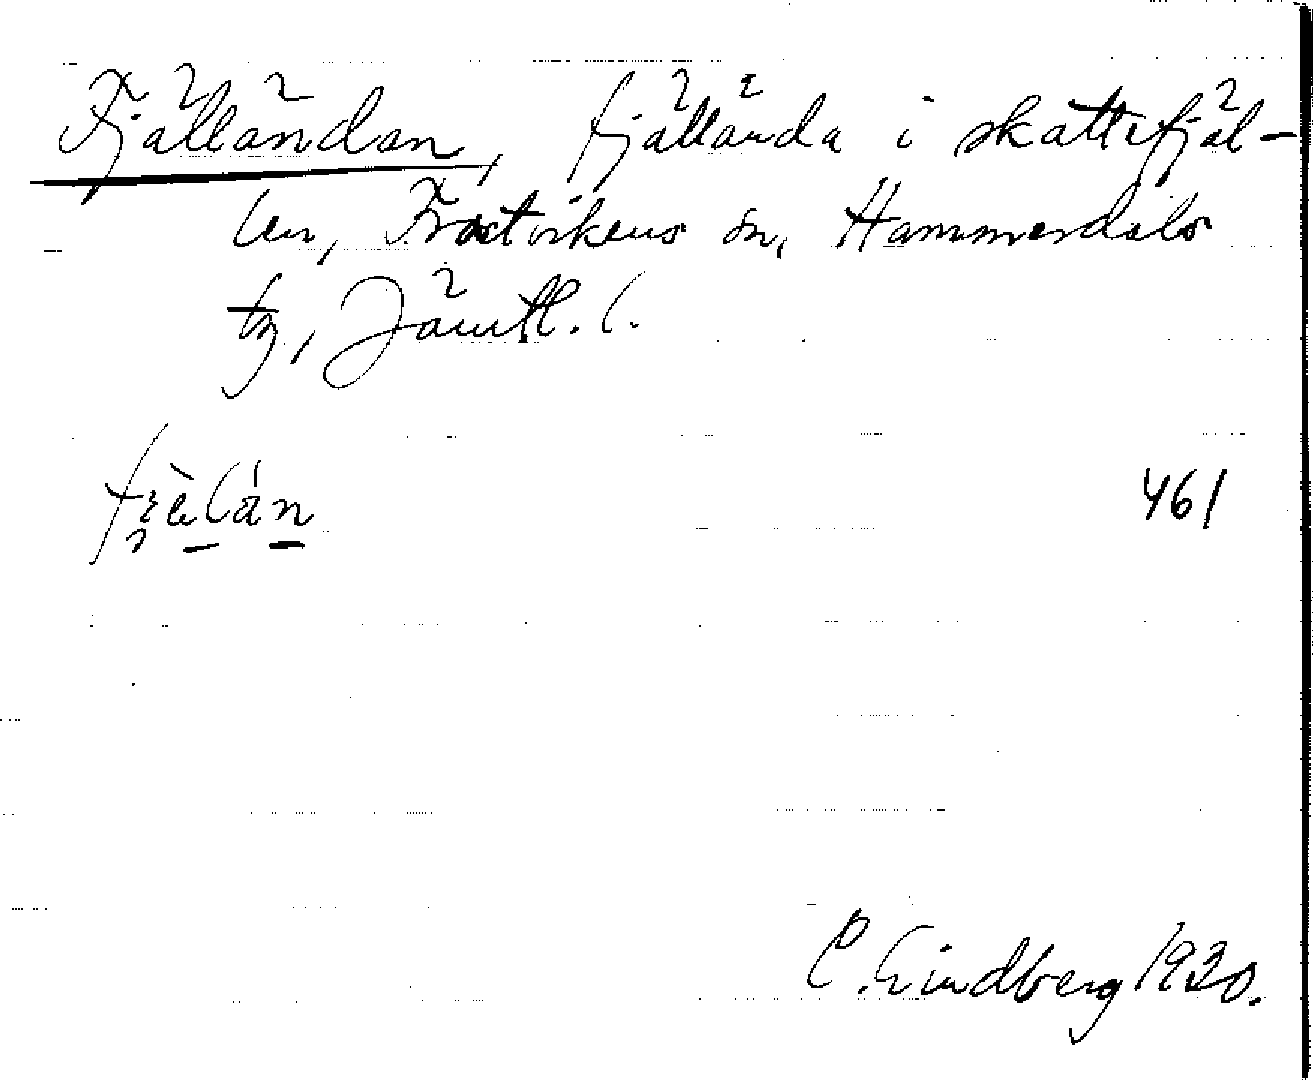 Fjälländan, fjällända i skattefjäl-
len, Frostvikens sn, Hammerdals
tg, Jämtl. l.
461
C. Lindberg 1930.